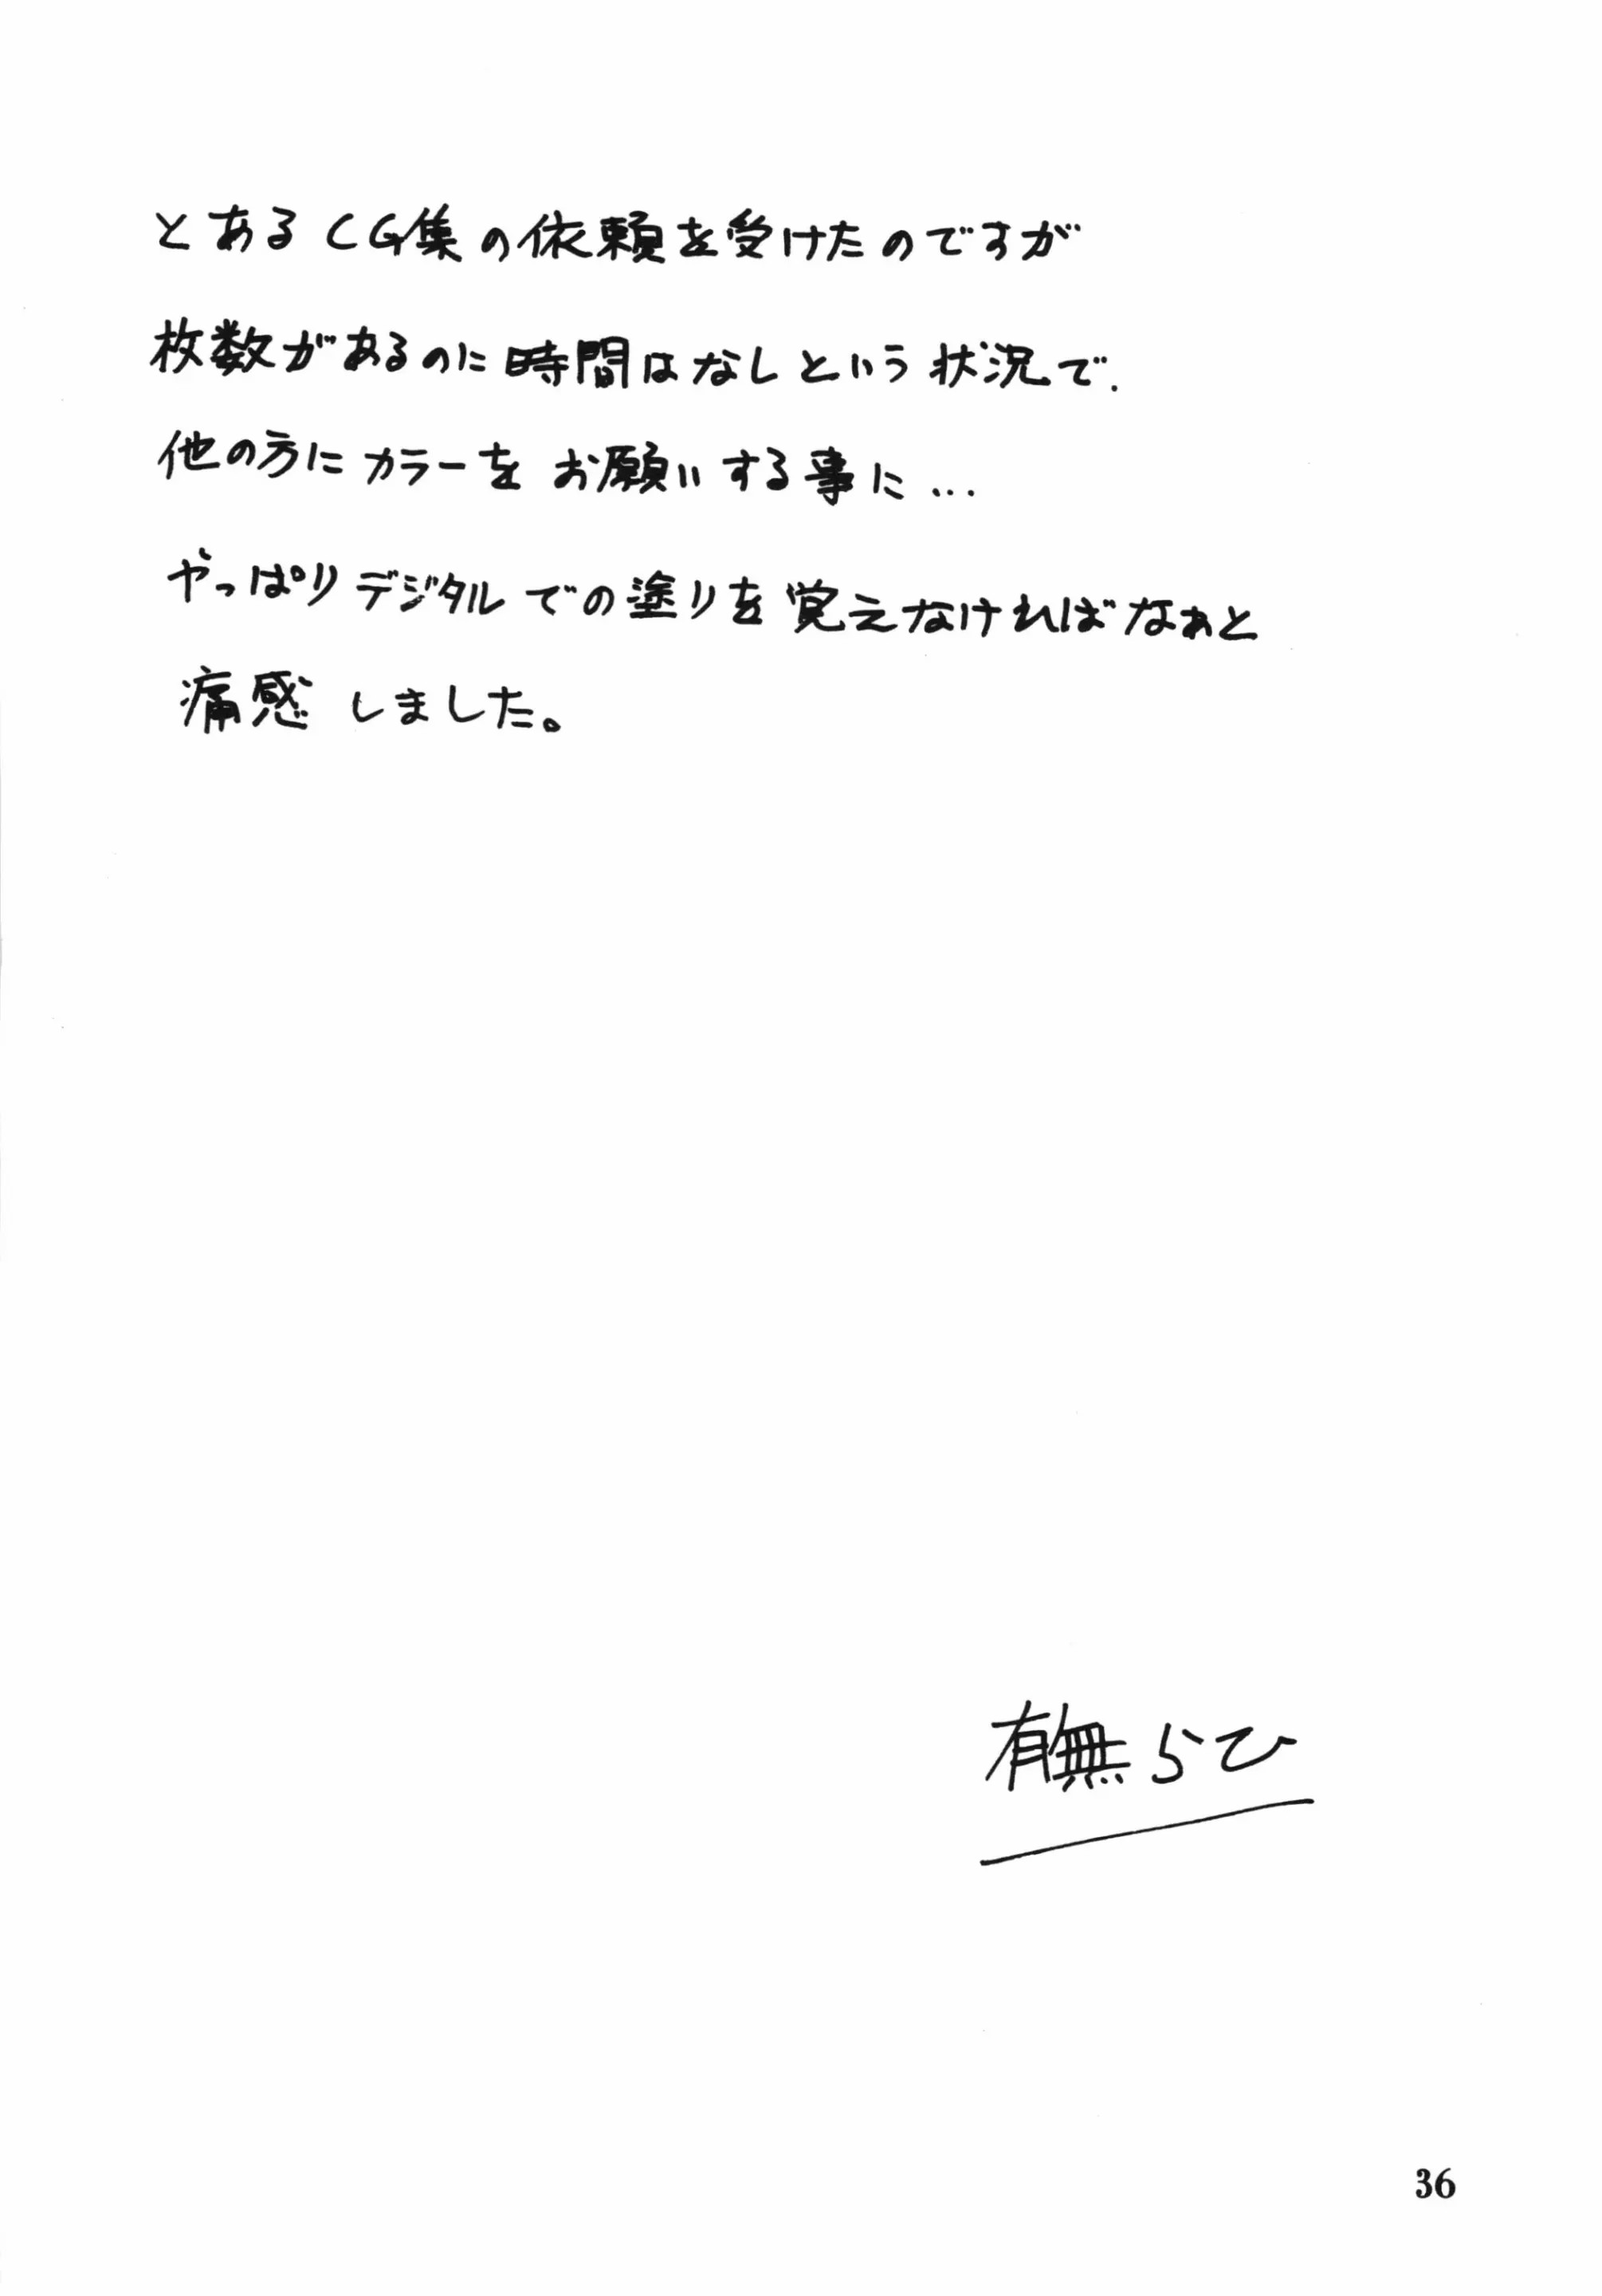 とあるCG集の依頼を受けたのですが
枚数があるのに時間はなしという状況で.
他の方にカラーをお願いする事に...
やっぱりデジタルでの塗りを覚えなければなぁと
痛感しました。
有無らひ
36